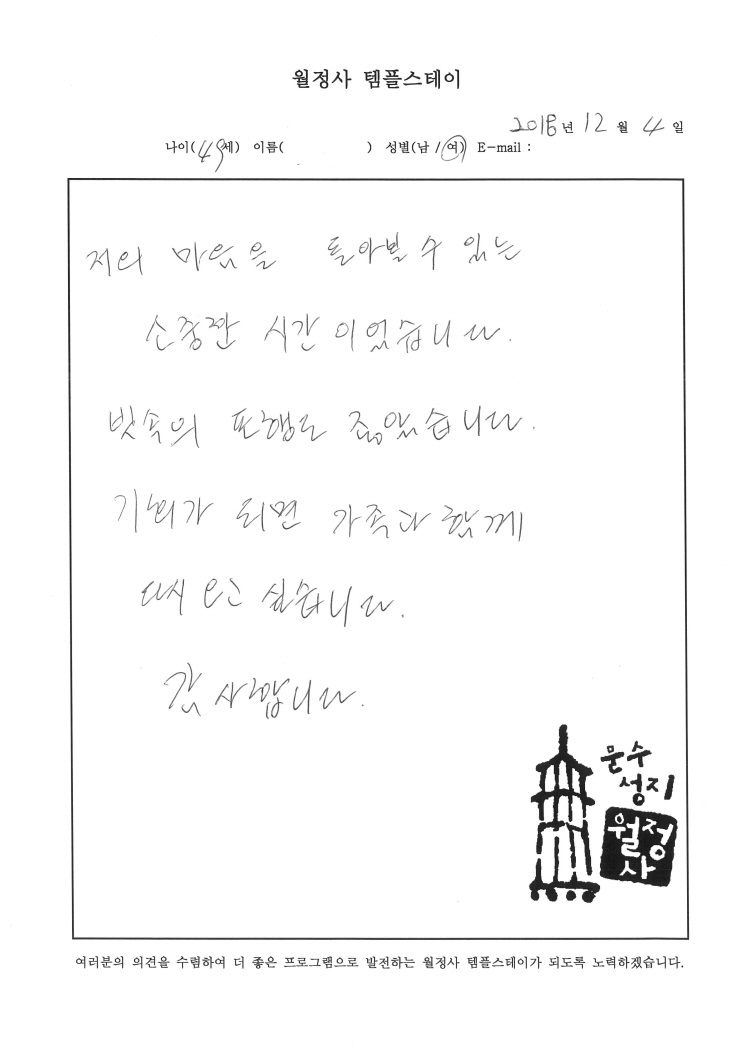 월정사 템플스테이
2018년 12월 4일
나이(49세) 이름( ) 성별(남 / 여) E-mail :
저의 마음을 돌아볼 수 있는
소중한 시간이었습니다.
빗속의 포행도 좋았습니다.
기회가 되면 가족과 함께
다시 오고 싶습니다.
감사합니다.
문수
성지
월정
사
여러분의 의견을 수렴하여 더 좋은 프로그램으로 발전하는 월정사 템플스테이가 되도록 노력하겠습니다.